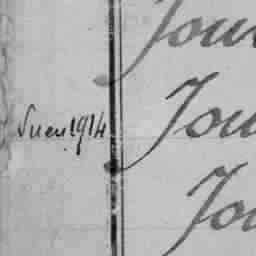 Jou
Suen 1914 Jou
Jou